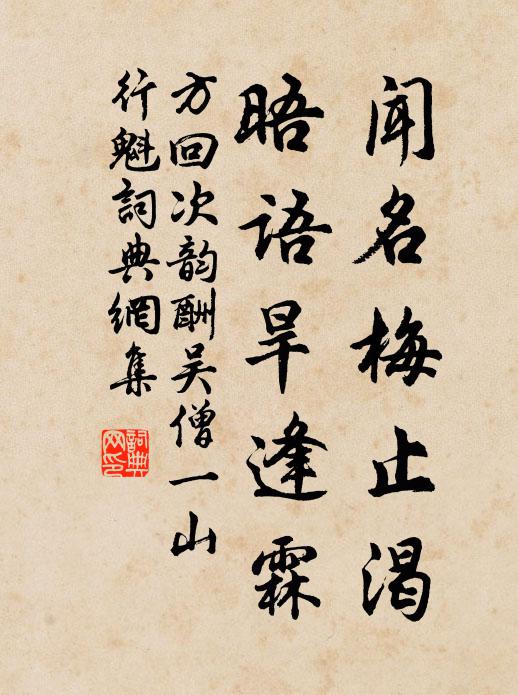 闻名梅止渴
晤语旱逢霖
方回次韵酬吴僧一山
行魁詞典網集
詞典网印